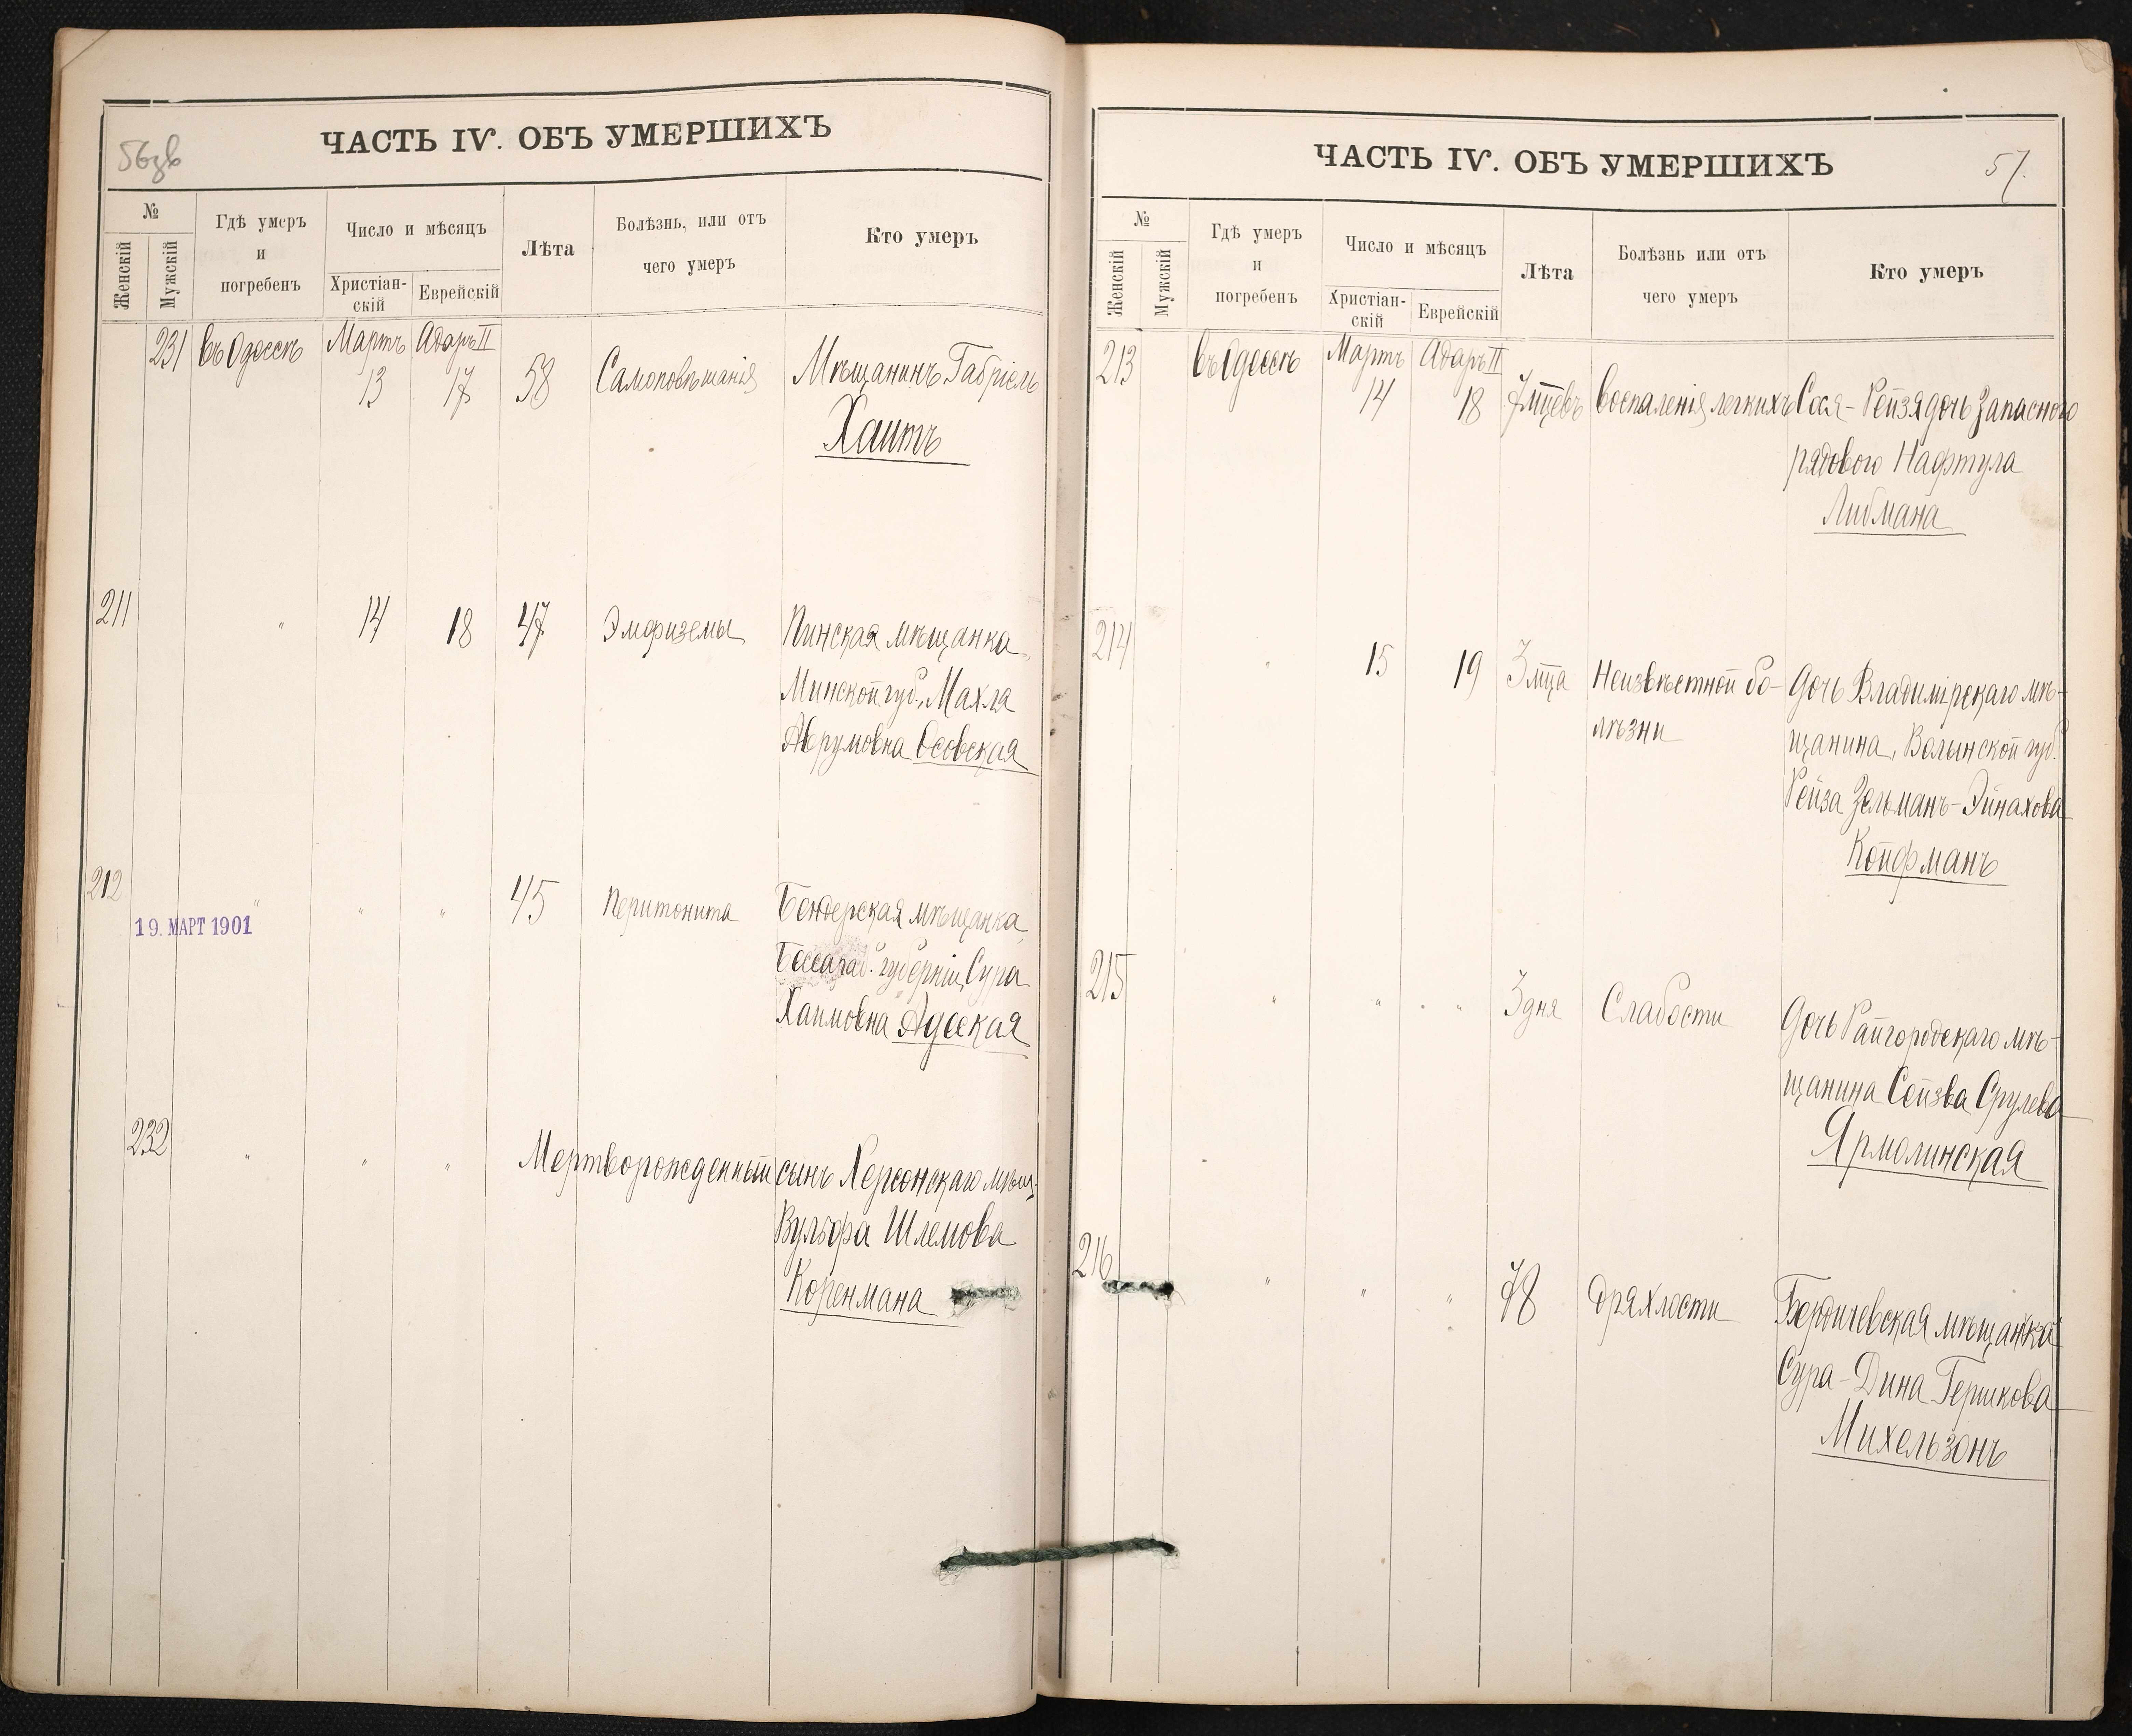 56зв
ЧАСТЬ IV. ОБЪ УМЕРШИХЪ
№
Женскій
Мужскій
Гдѣ умеръ
и
погребенъ
Число и мѣсяцъ
Христіан-
скій
Еврейскій
Лѣта
Болѣзнь, или отъ
чего умеръ
Кто умеръ
231 въ Одессѣ Мартъ Адаръ II
13 17 58 Самоповѣшанія Мѣщанинъ Габріель
Хаитъ
211 " 14 18 47 Эмфиземы Пинская мѣщанка,
Минской губ., Махля
Аврумовна Осовская
212 " " " 45 Перитонита Бендерская мѣщанка
19. МАРТ 1901
Бессараб. губерніи, Сура
Хаимовна Адесская
232 " " " Мертворожденный сынъ Херсонскаго мѣщ.
Вульфа Шлемова
Коренмана
ЧАСТЬ IV. ОБЪ УМЕРШИХЪ
57.
№
Женскій
Мужскій
Гдѣ умеръ
и
погребенъ
Число и мѣсяцъ
Христіан-
скій
Еврейскій
Лѣта
Болѣзнь или отъ
чего умеръ
Кто умеръ
213 въ Одессѣ Мартъ Адаръ II
14 18 7 мцевъ Воспаленія легкихъ Сося-Рейзя дочь Запасного
рядового Нафтула
Либмана
214 " 15 19 3 мца Неизвѣстной бо- Дочь Владимірскаго мѣ-
лѣзни щанина, Волынской губ.
Рейза Зельманъ-Эйнахова
Койфманъ
215 " " " 3 дня Слабости Дочь Райгородскаго мѣ-
щанина Сейзва Срулева
Ярмолинская
216 " " " 78 Дряхлости Бердичевская мѣщанка
Сура-Дина Гершкова
Михельзонъ